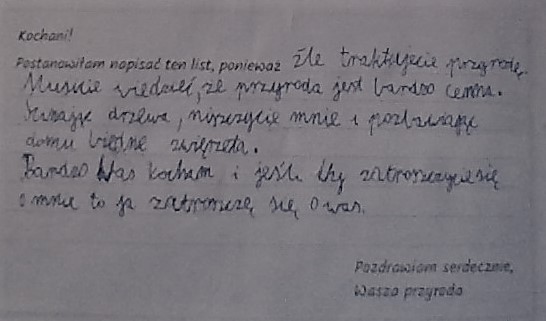 Kochani!
Postanowiłam napisać ten list, ponieważ źle traktujecie przyrodę.
Musicie wiedzieć, że przyroda jest bardzo cenna.
Ścinając drzewa, niszczycie mnie i pozbawiając
domu biedne zwięrzęta.
Bardzo Was kocham i jeśli Wy zatroszczycie się
o mnie to ja zatroszczę się o was.
Pozdrawiam serdecznie,
Wasza przyroda